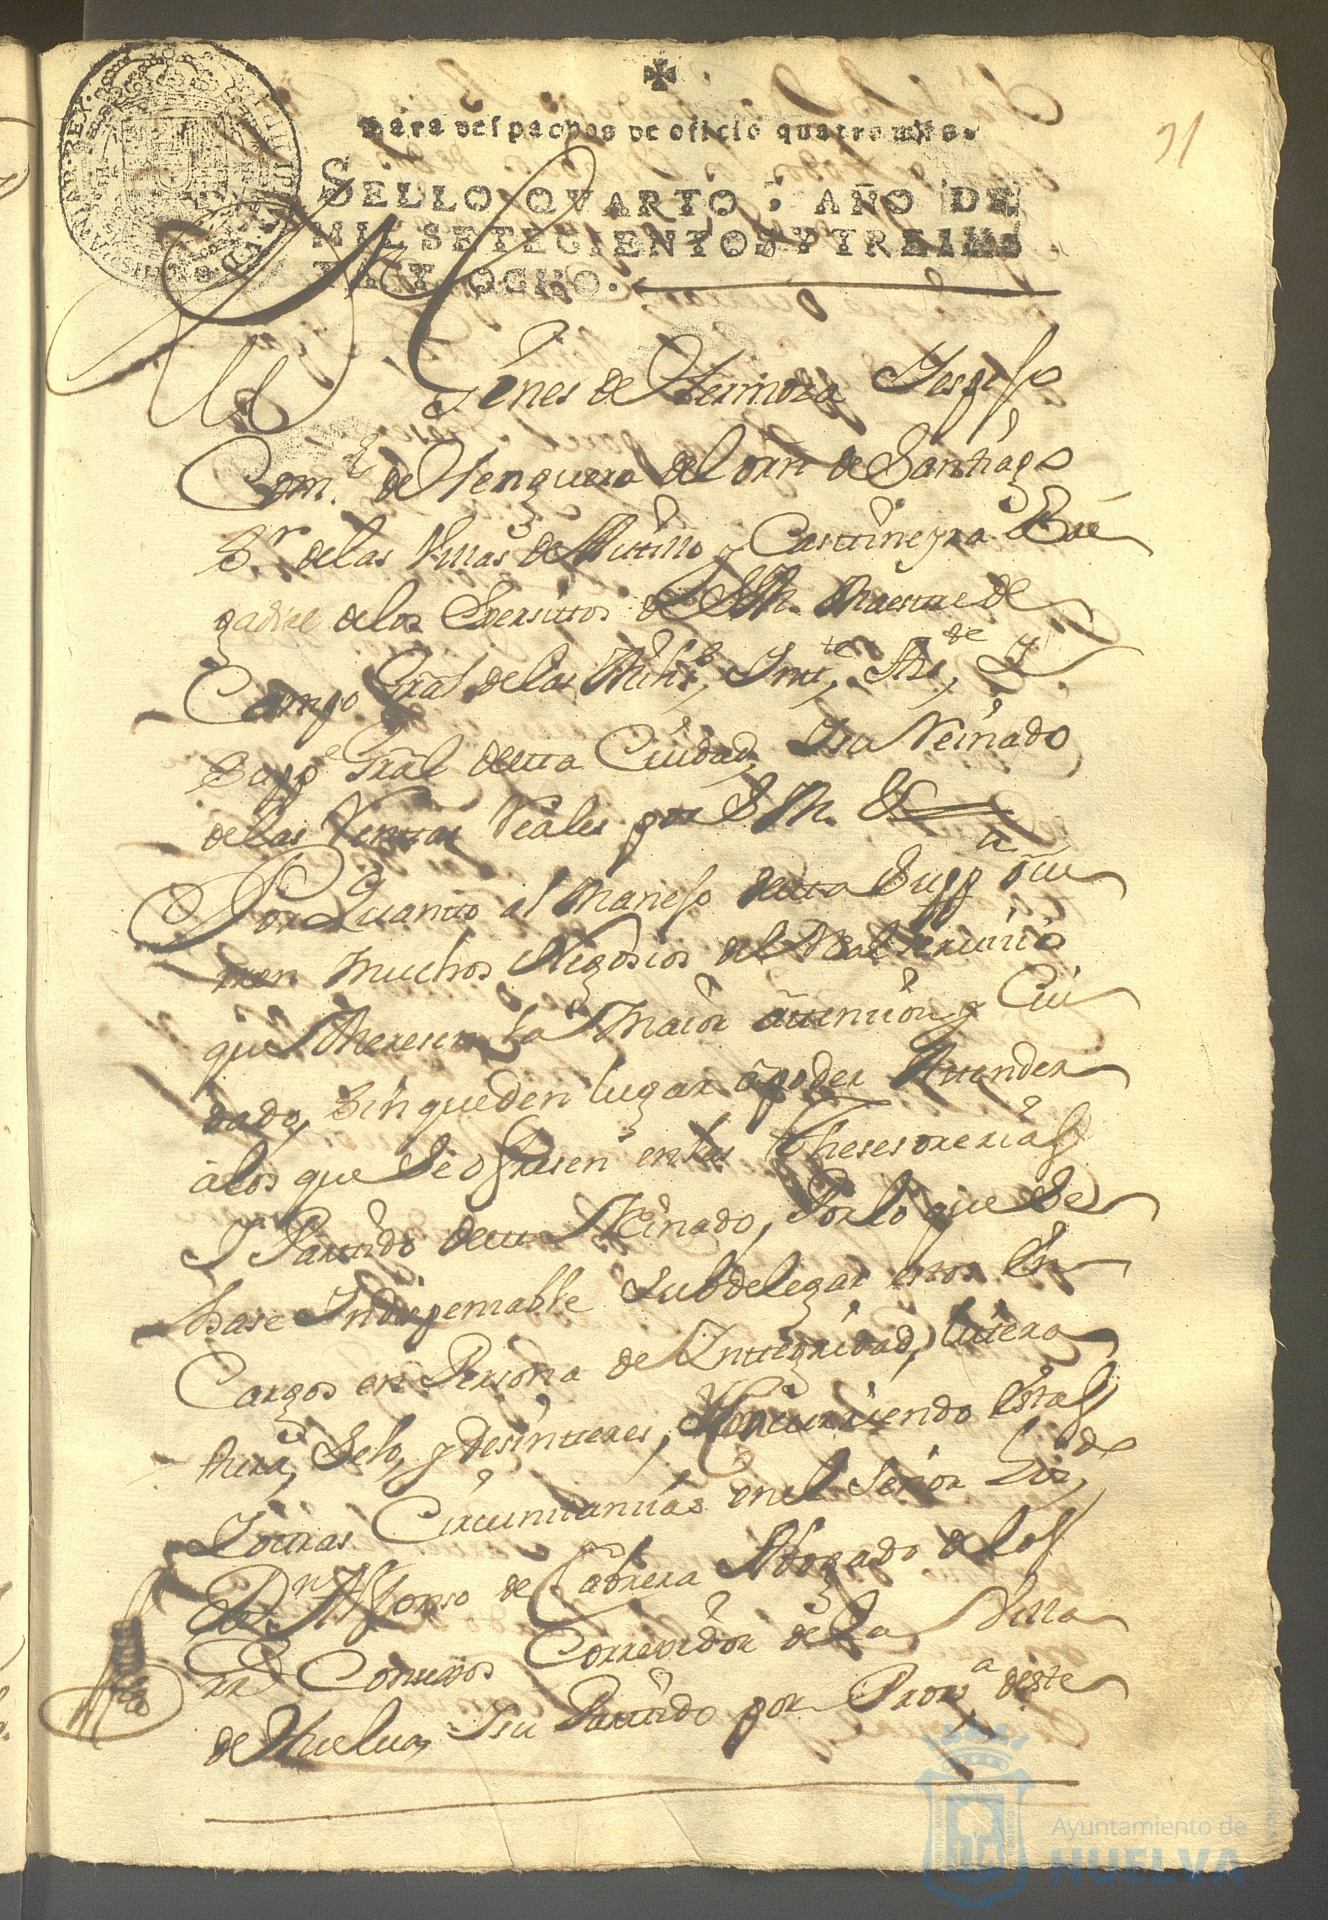 31
Para despachos de oficio quatro mrs.
SELLO QVARTO, AÑO DE
MIL SETECIENTOS Y TREIN
TA Y OCHO.
Gines de Hermosa Yespejo
Com.r de Henguera del orn de Santiago
Sr. de las Villas de Autillo y Casttineyra Bri
gadier de los Exersittos de S. M. Maestre de
Campo Gral de las Milis, Intte, Asde, Y
Supp.e Gral destta Ciudad, Ysu Reinado
de las Renttas Reales por S. M. &
Por Quantto al Manejo destta Supp.a ocu
rren Muchos Negosios del Real servicio
que Meresen la Maior attencion y Cui
dado, Sin queden lugar apoder Attender
alos que Se ofresen en las Thesorerias
Y Parttido destte Reinado, Por lo que Se
hase Indispensable Subdelegar esttos En
Cargos en Persona de Ynttegridad, littera
ttura, Selo, y desintteres, Concurriendo Esttas
Yottras Circunstancias en el Señor Lizdo
Dn Alfonso de Cabrera Abogado de los
RRs Consexos Correxidor de la Villa
de Huelva, Ysu Parttido por Prova deste
Ayuntamiento de
HUELVA